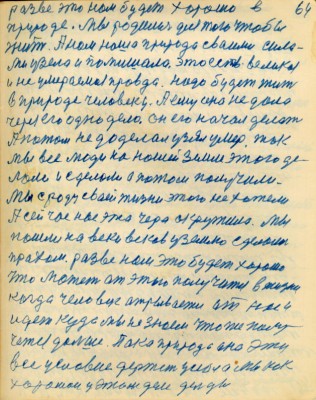 разве это нам будет хорошо в 64
природе. Мы родились для того чтобы
жить. А нам наша природа сваими сила-
ми взела и
и не умераемая правда. надо будет жить
в природе человеку. А ему она не дала
через одно дело, он его начал делать
А потом не доделал узял умер, так
мы все люди на нашей Земле этого де-
лали и сделали а потом получили.
Мы сроду сваей жизни этого не хотели
А сейчас нас эта чера окружила. Мы
пошли на веки веков у землю сделались
прахом. разве нам это будет хорошо
что может от этого получится в жизни
когда человек атрываится от нас и
идет куда мы не знаем что же полу-
чется дальше. А как природа она эти
все условия держит у себя а мы как
хоронили у этом деле